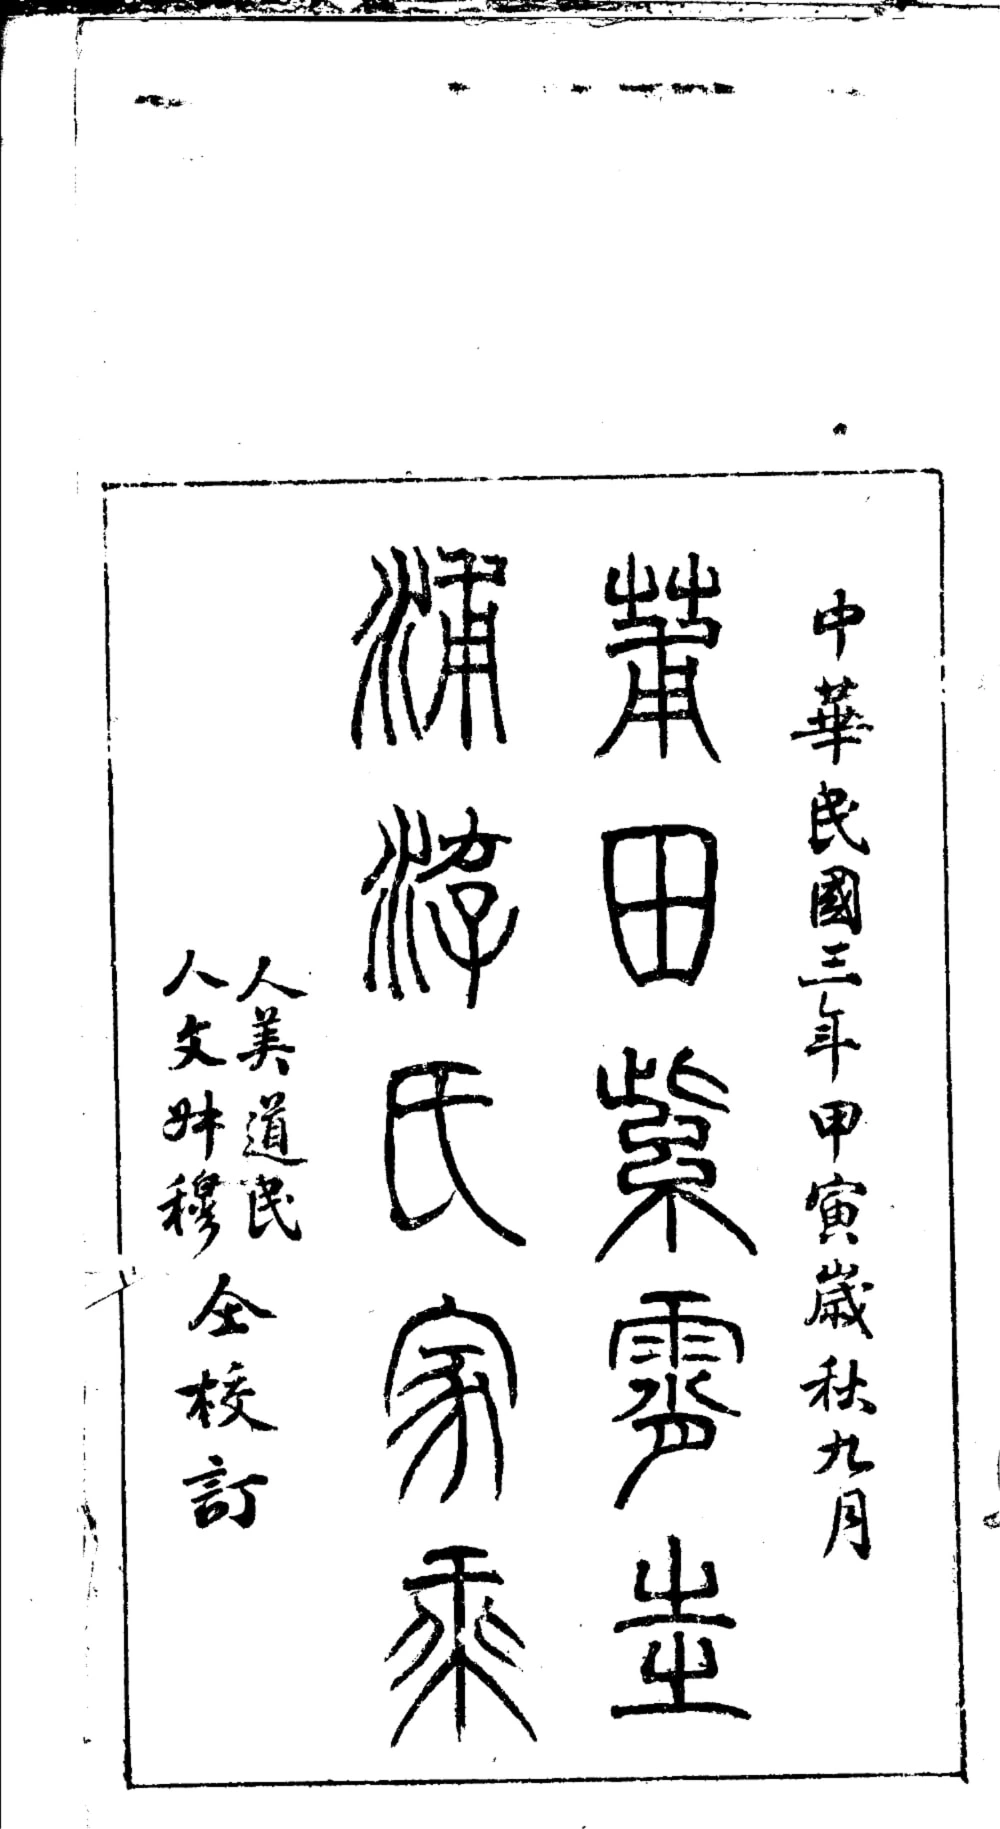 中華民國三年甲寅歲秋九月
莆田紫霄圭
浦游氏家乘
人美道民
人文穆
仝校訂